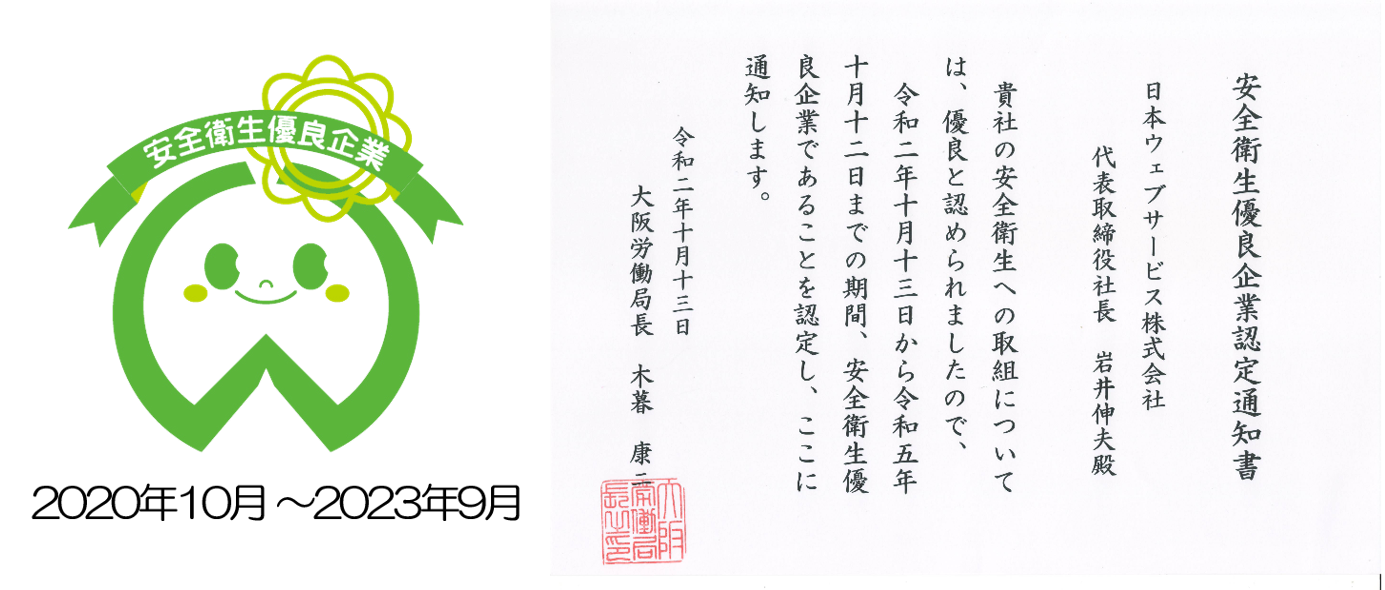 安全衛生優良企業
2020年10月～2023年9月
安全衛生優良企業認定通知書
日本ウェブサービス株式会社
代表取締役社長　岩井伸夫殿
貴社の安全衛生への取組について
は、優良と認められましたので、
令和二年十月十三日から令和五年
十月十二日までの期間、安全衛生優
良企業であることを認定し、ここに
通知します。
令和二年十月十三日
大阪労働局長　木暮　康二
大阪
労働局
長之印